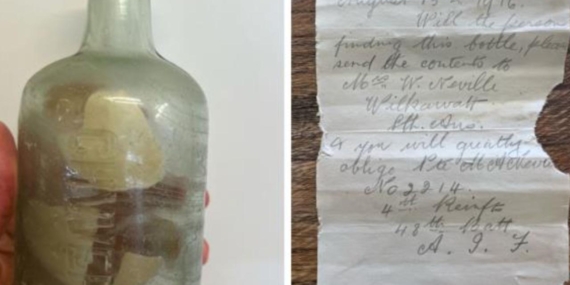 August 15th 1916.
Will the person
finding this bottle, please
send the contents to
Mrs W. Neville
Wilkawatt
Sth. Aus.
& you will greatly
oblige Pte M A Neville
No 2214.
4th Reinft
48th Batt
A. I. F.